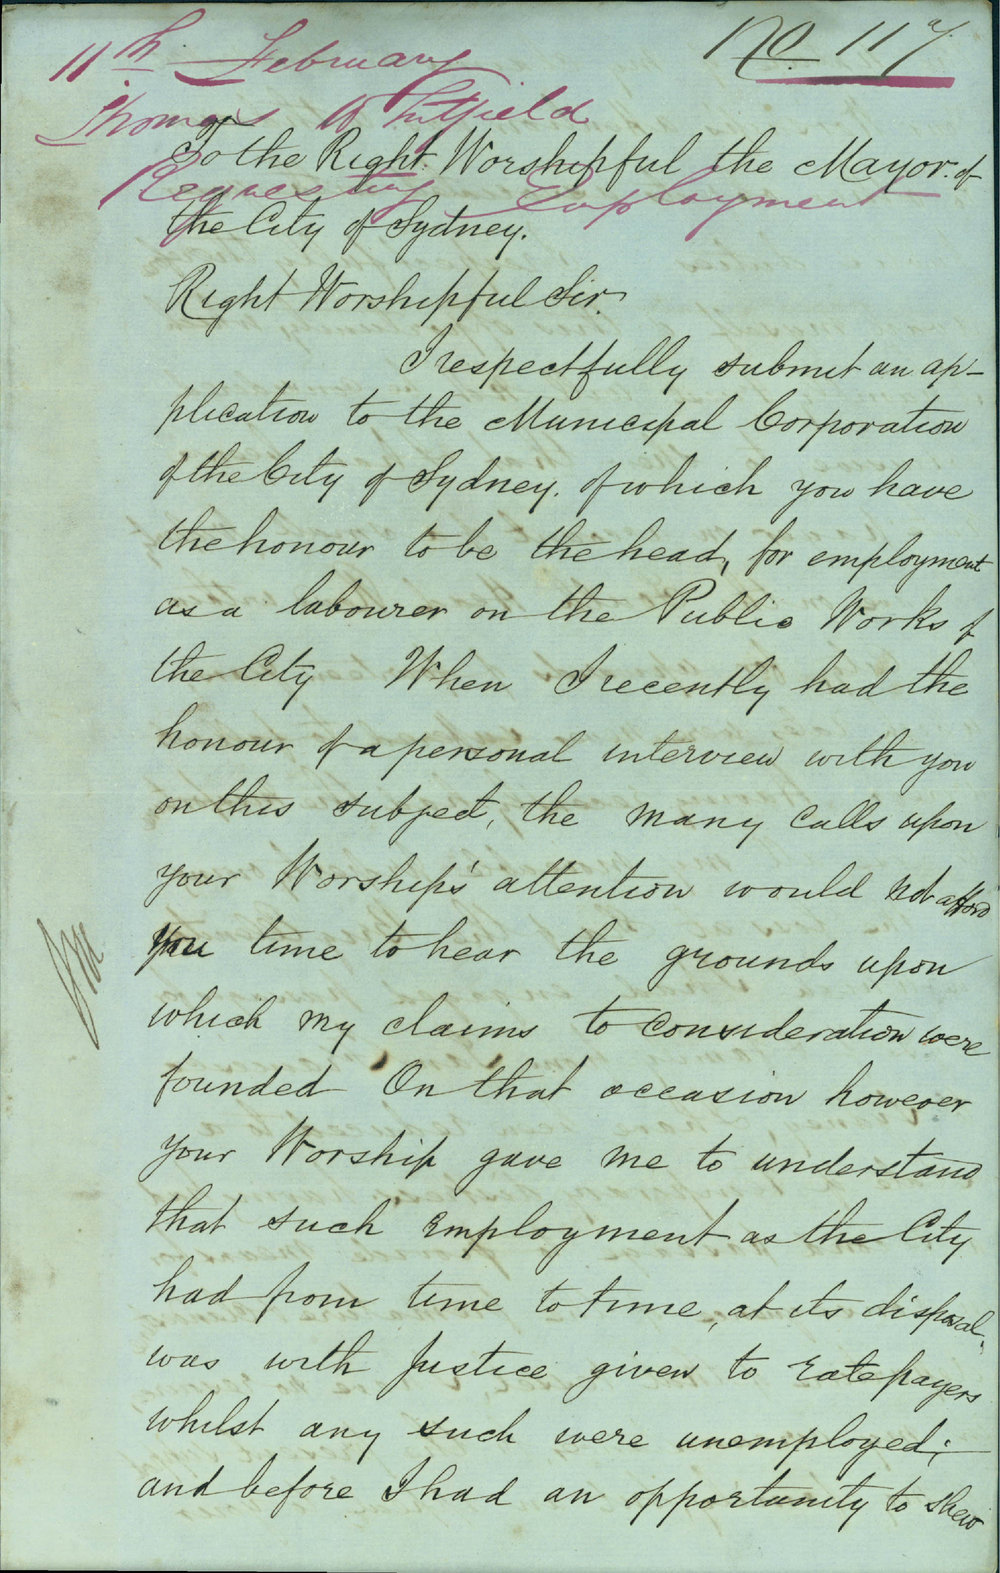 No 117
11th February
Thomas Whitfield
Requesting Employment
To the Right Worshipful the Mayor of
the City of Sydney.
Right Worshipful Sir.
I respectfully submit an ap-
plication to the Municipal Corporation
of the City of Sydney. of which you have
the honour to be the head, for employment
as a labourer on the Public Works of
the City When I recently had the
honour of a personal interview with you
on this subject, the many calls upon
your Worship's attention would not afford
you time to hear the grounds upon
which my claims to consideration were
founded On that occasion however
your Worship gave me to understand
that such employment as the City
had from time to time, at its disposal,
was with justice given to ratepayers
whilst any such were unemployed;
and before I had an opportunity to shew